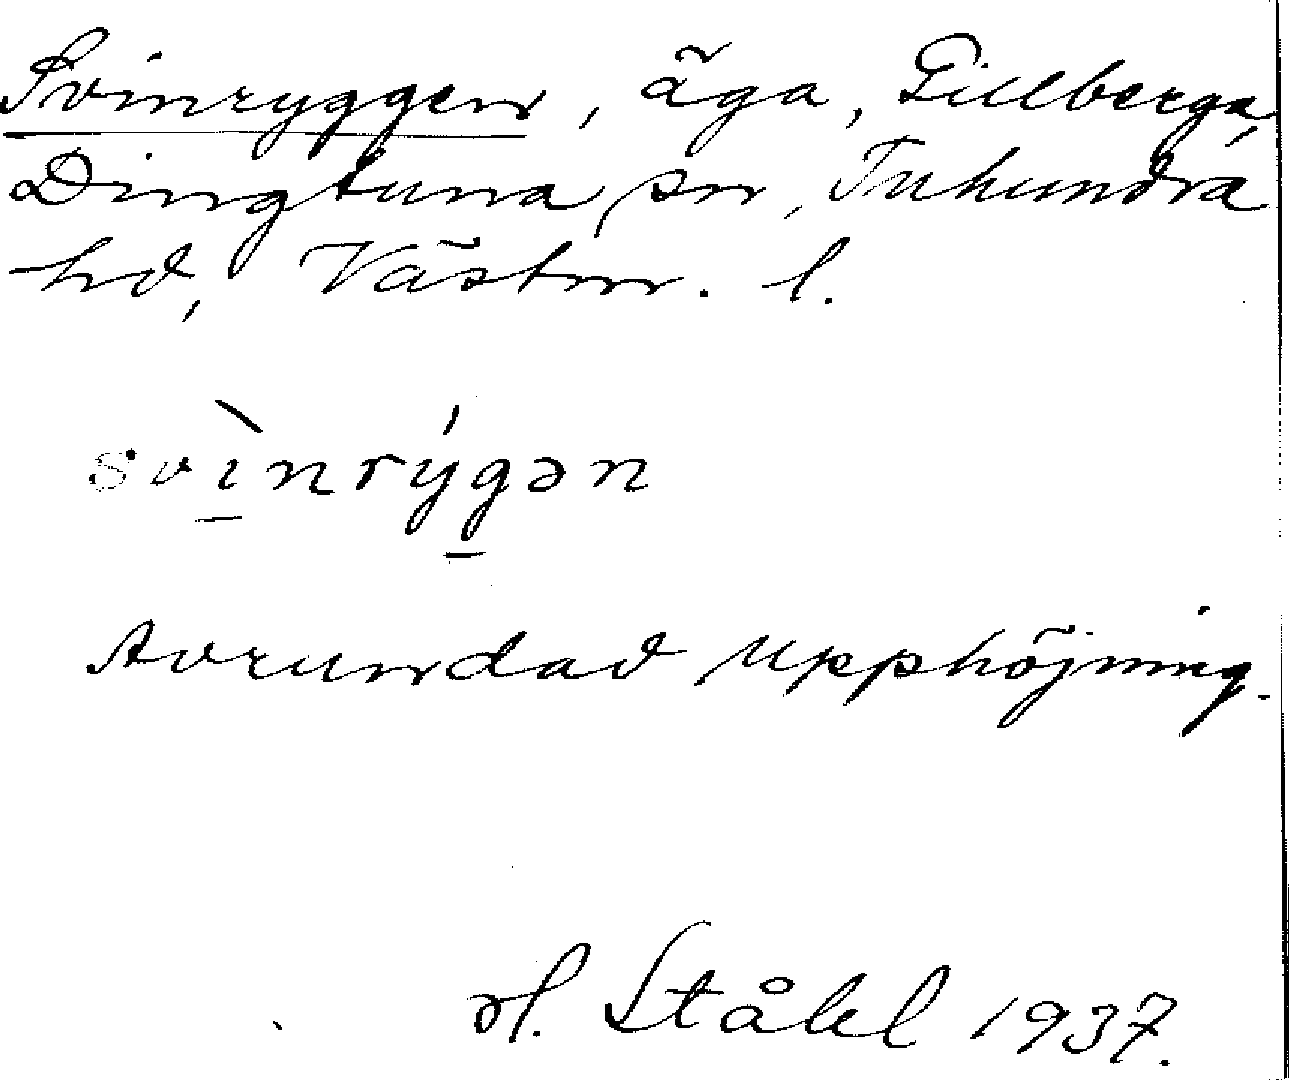 Svinryggen, äga, Tillberga,
Dingtuna sn, Tuhundra
hd, Västm. l.
svìnrýgən
Avrundad upphöjning.
H. Ståhl 1937.